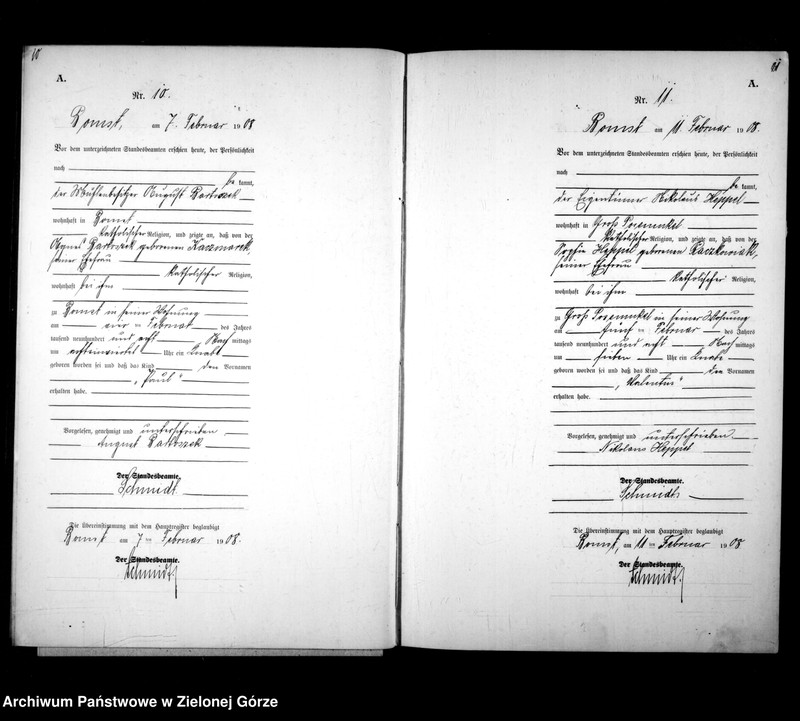 10
A.
Nr. 10.
Bomst, am 7. Februar 1908
Vor dem unterzeichneten Standesbeamten erschien heute, der Persönlichkeit
nach
be kannt,
der Mühlenbesitzer August Bartoszek
wohnhaft in Bomst
katholischer Religion, und zeigte an, daß von der
Agnes Bartoszek geborenen Kaczmarek,
seiner Ehefrau
katholischer Religion,
wohnhaft bei ihm
zu Bomst in seiner Wohnung
am Februar des Jahres
tausend neunhundert und acht Nach mittags
um Uhr ein Knabe
geboren worden sei und daß das Kind den Vornamen
„Paul"
erhalten habe.
Vorgelesen, genehmigt und unterschrieben
August Bartoszek
Der Standesbeamte.
Schmidt
Die Übereinstimmung mit dem Hauptregister beglaubigt
Bomst am 7 ten Februar 1908.
Der Standesbeamte.
Schmidt
A.
Nr. 11.
Bomst am 11. Februar 1908.
Vor dem unterzeichneten Standesbeamten erschien heute, der Persönlichkeit
nach
be kannt,
der Eigentümer Nikolaus Heppel
wohnhaft in Groß Posemukel
katholischer Religion, und zeigte an, daß von der
Sophie Heppel geborenen Raczkowiak,
seiner Ehefrau
katholischer Religion,
wohnhaft bei ihm
zu Groß Posemukel in seiner Wohnung
am fünf ten Februar des Jahres
tausend neunhundert und acht Nach mittags
um sieben Uhr ein Knabe
geboren worden sei und daß das Kind den Vornamen
„Valentin"
erhalten habe.
Vorgelesen, genehmigt und unterschrieben
Nikolaus Heppel
Der Standesbeamte.
Schmidt
Die Übereinstimmung mit dem Hauptregister beglaubigt
Bomst, am 11 ten Februar 1908
Der Standesbeamte.
Schmidt
Archiwum Państwowe w Zielonej Górze